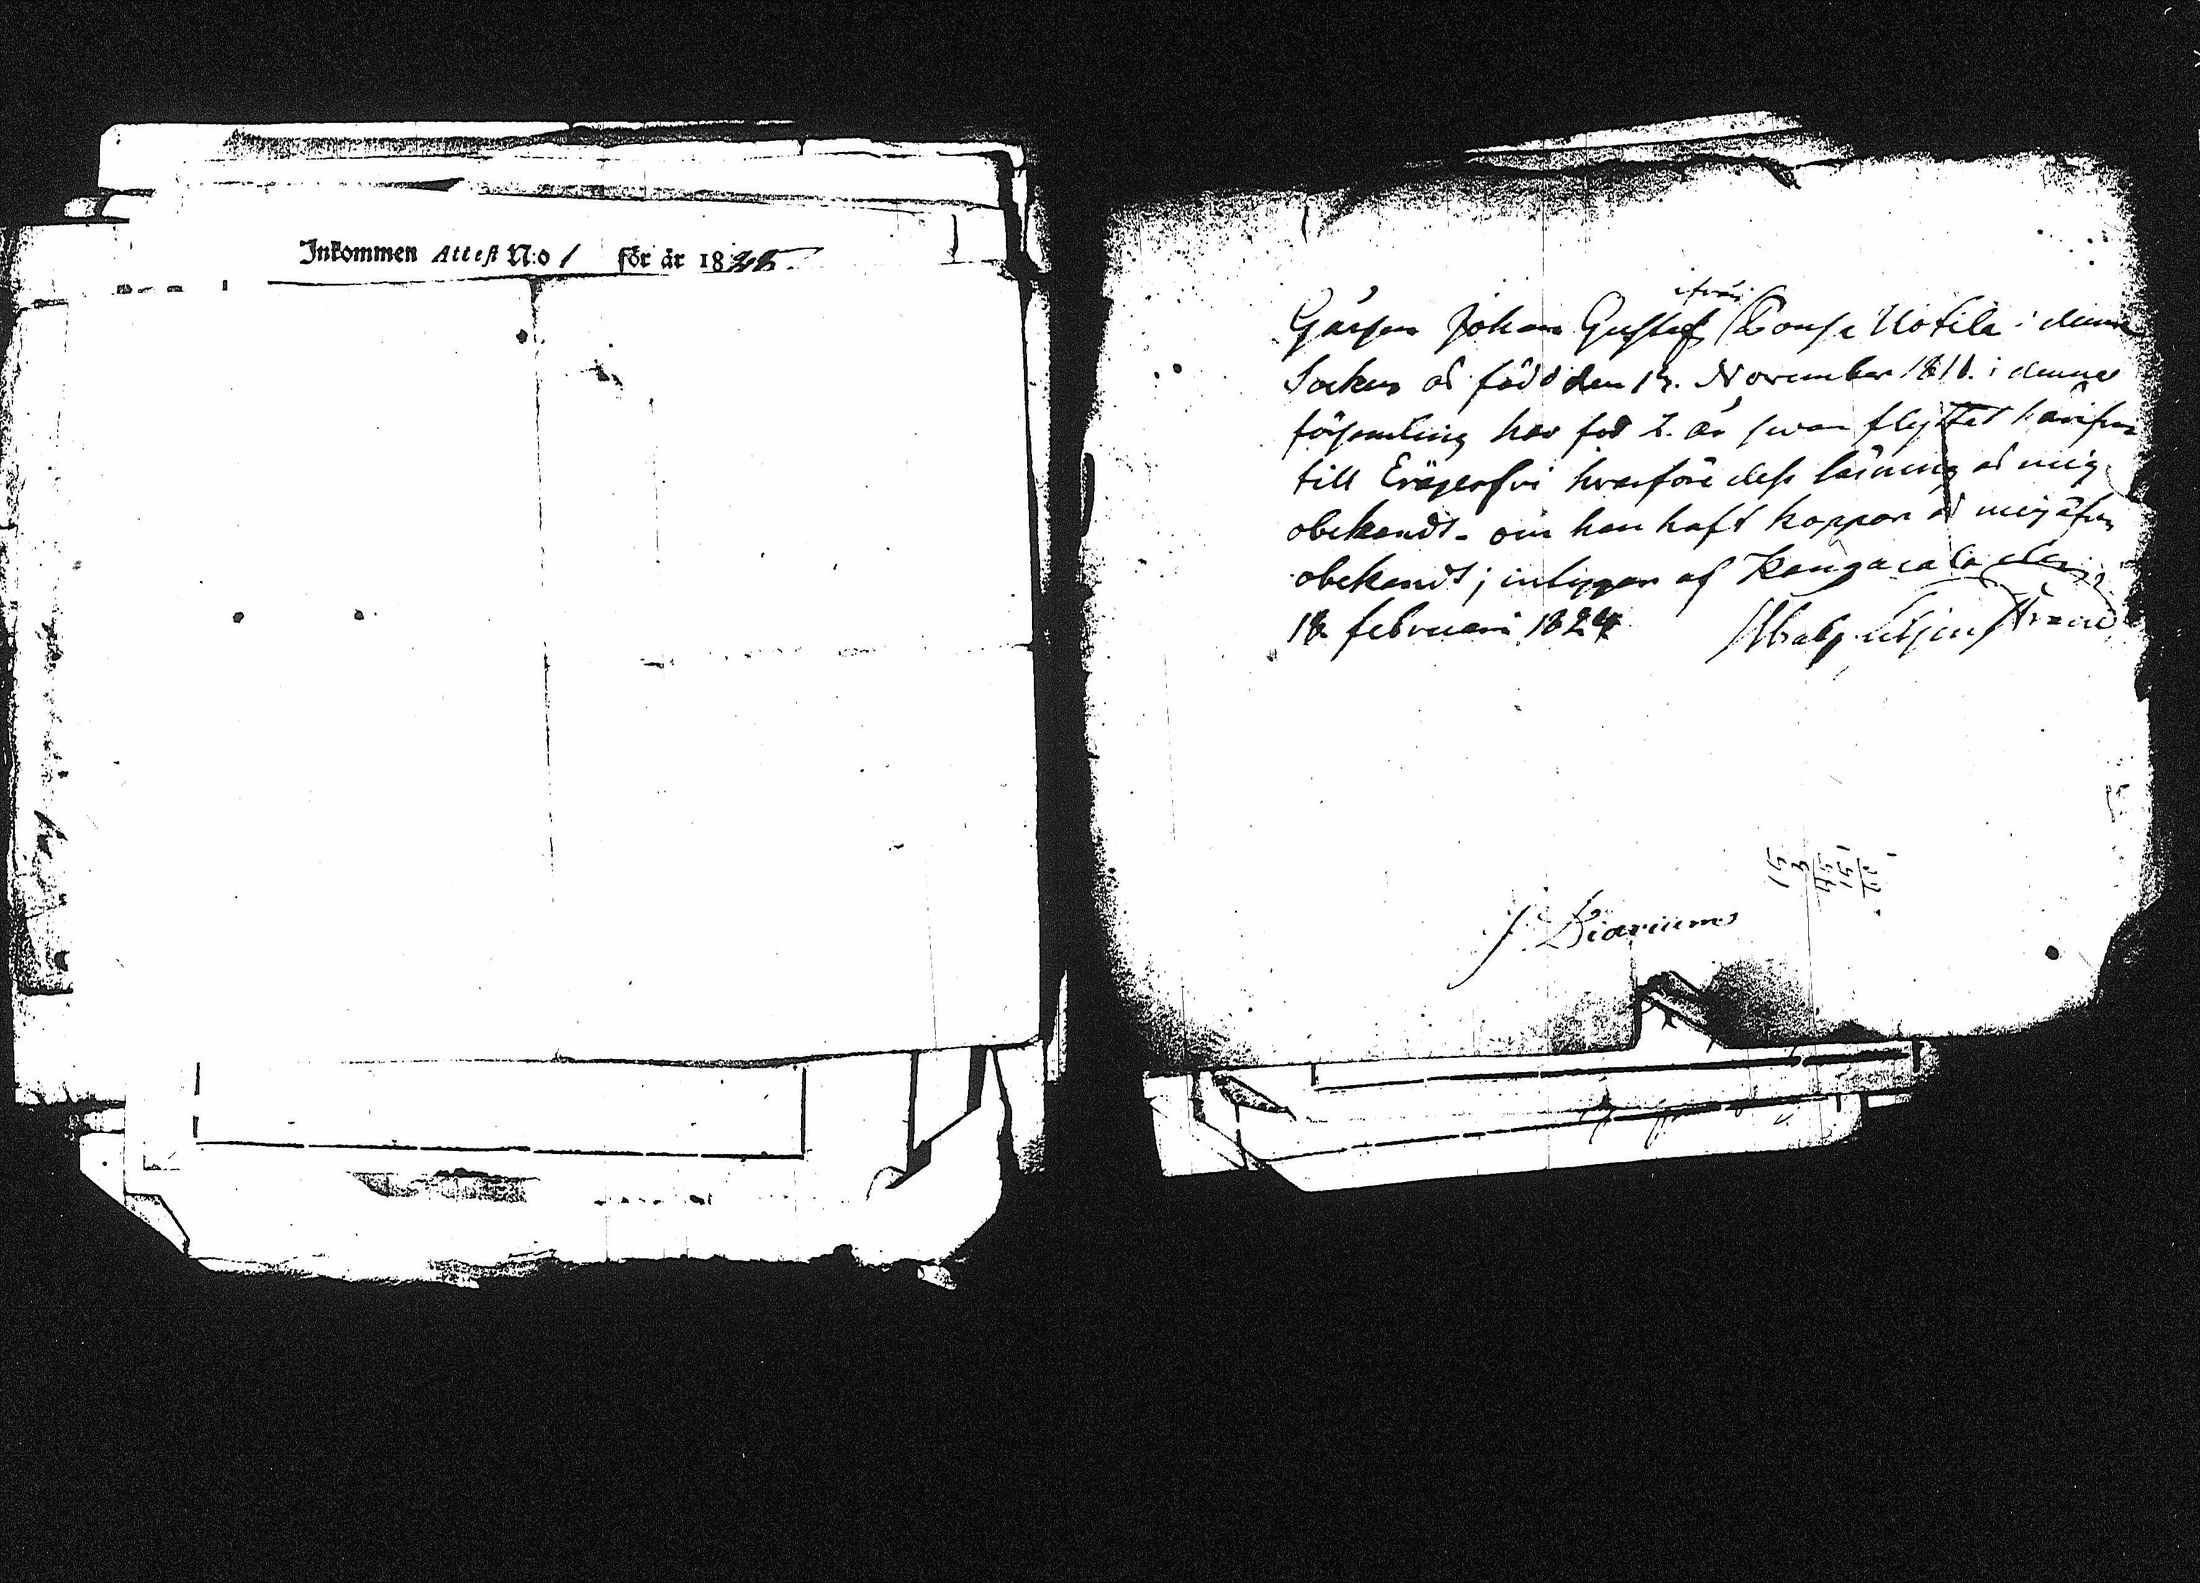 Inkommen Attest N:o 1 för år 1825.
ifrån
Gåssen Johan Gustaf Tousa Uotila i denna
Socken är född den 17. November 1811. i denna
församling har för 2. år swan flyttat härifrån
till Eräjerfvi hvarföre dess läsning är mig
obekandt - om han haft koppor är mig äfven
obekandt; intygar af Kangasala den
18 februari 1824
J. Diarium